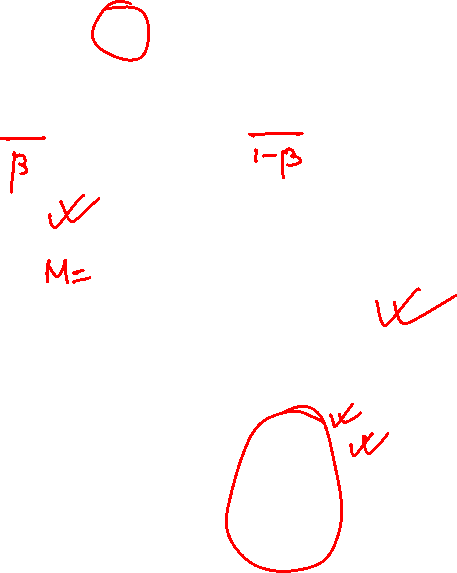 β 1-β
M=